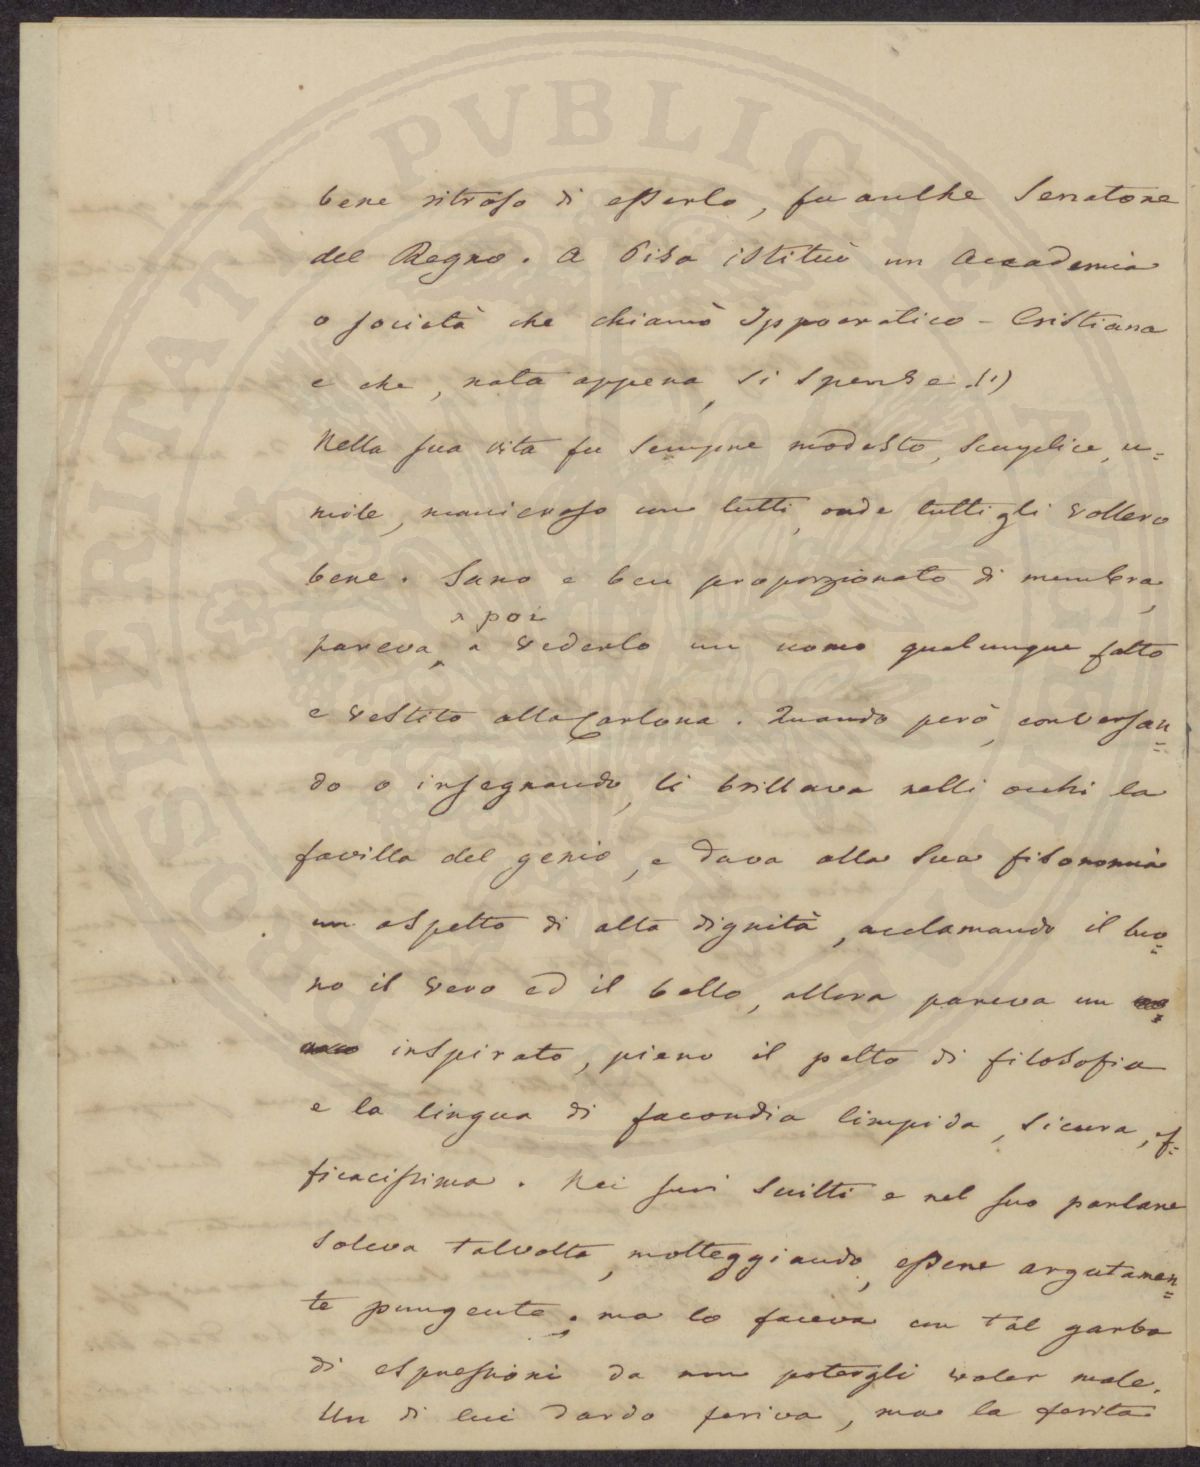 bene ritroso di esserlo, fu anche Senatore
del Regno. A Pisa istituì un Accademia
o società che chiamò Ippocratico-Cristiana
e che, nata appena, si spense.(1)
Nella sua vita fu sempre modesto, semplice, u=
mile, manieroso con tutti, onde tutti gli vollero
bene. Sano e ben proporzionato di membra,
poi
pareva, a vederlo un uomo qualunque fatto
e vestito alla Carlona. Quando però, conversan=
do o insegnando, li brillava nelli occhi la
favilla del genio, e dava alla sua fisonomia
un aspetto di alta dignità, acclamando il buo=
no il vero ed il bello, allora pareva un
inspirato, pieno il petto di filosofia
e la lingua di facondia limpida, sicura, ef=
ficacissima. Nei suoi scritti e nel suo parlare
soleva talvolta, motteggiando, essere argutamen=
te pungente; ma lo faceva con tal garbo
di espressioni da non potergli voler male.
Un di lui dardo feriva, ma la ferita
PVBLIC